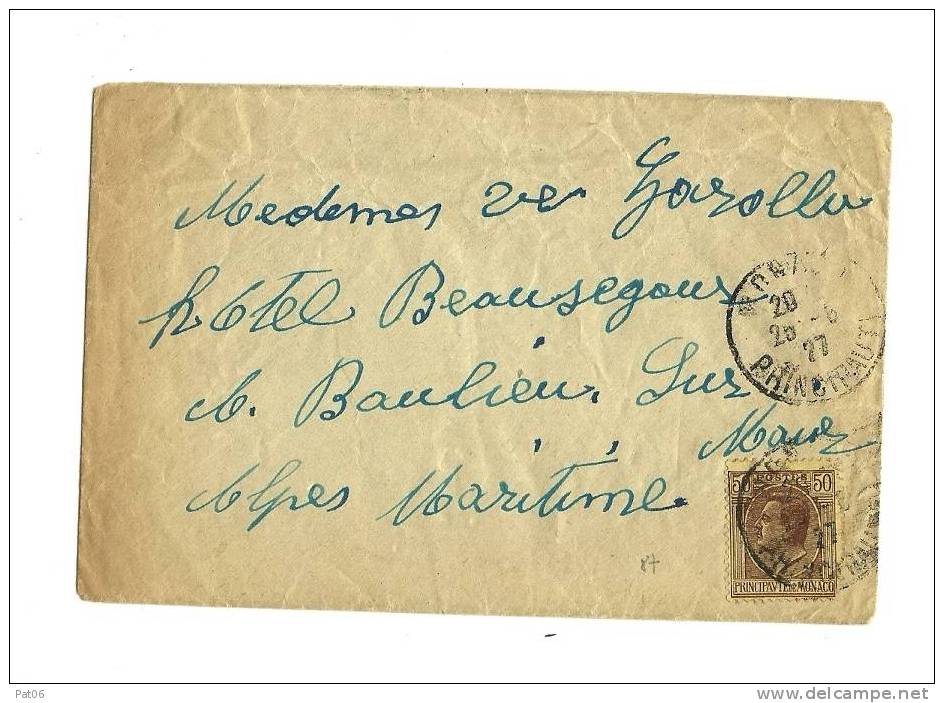 Medemes ve Gorollu
hôtel Beausegour
A. Baulieu. Sur
Maur
Alpes Maritime
20
25 - 5
27
PRINCIPAUTÉ
50 POSTES 50
PRINCIPAVTÉ DE MONACO
87
Pat06
www.delcampe.net